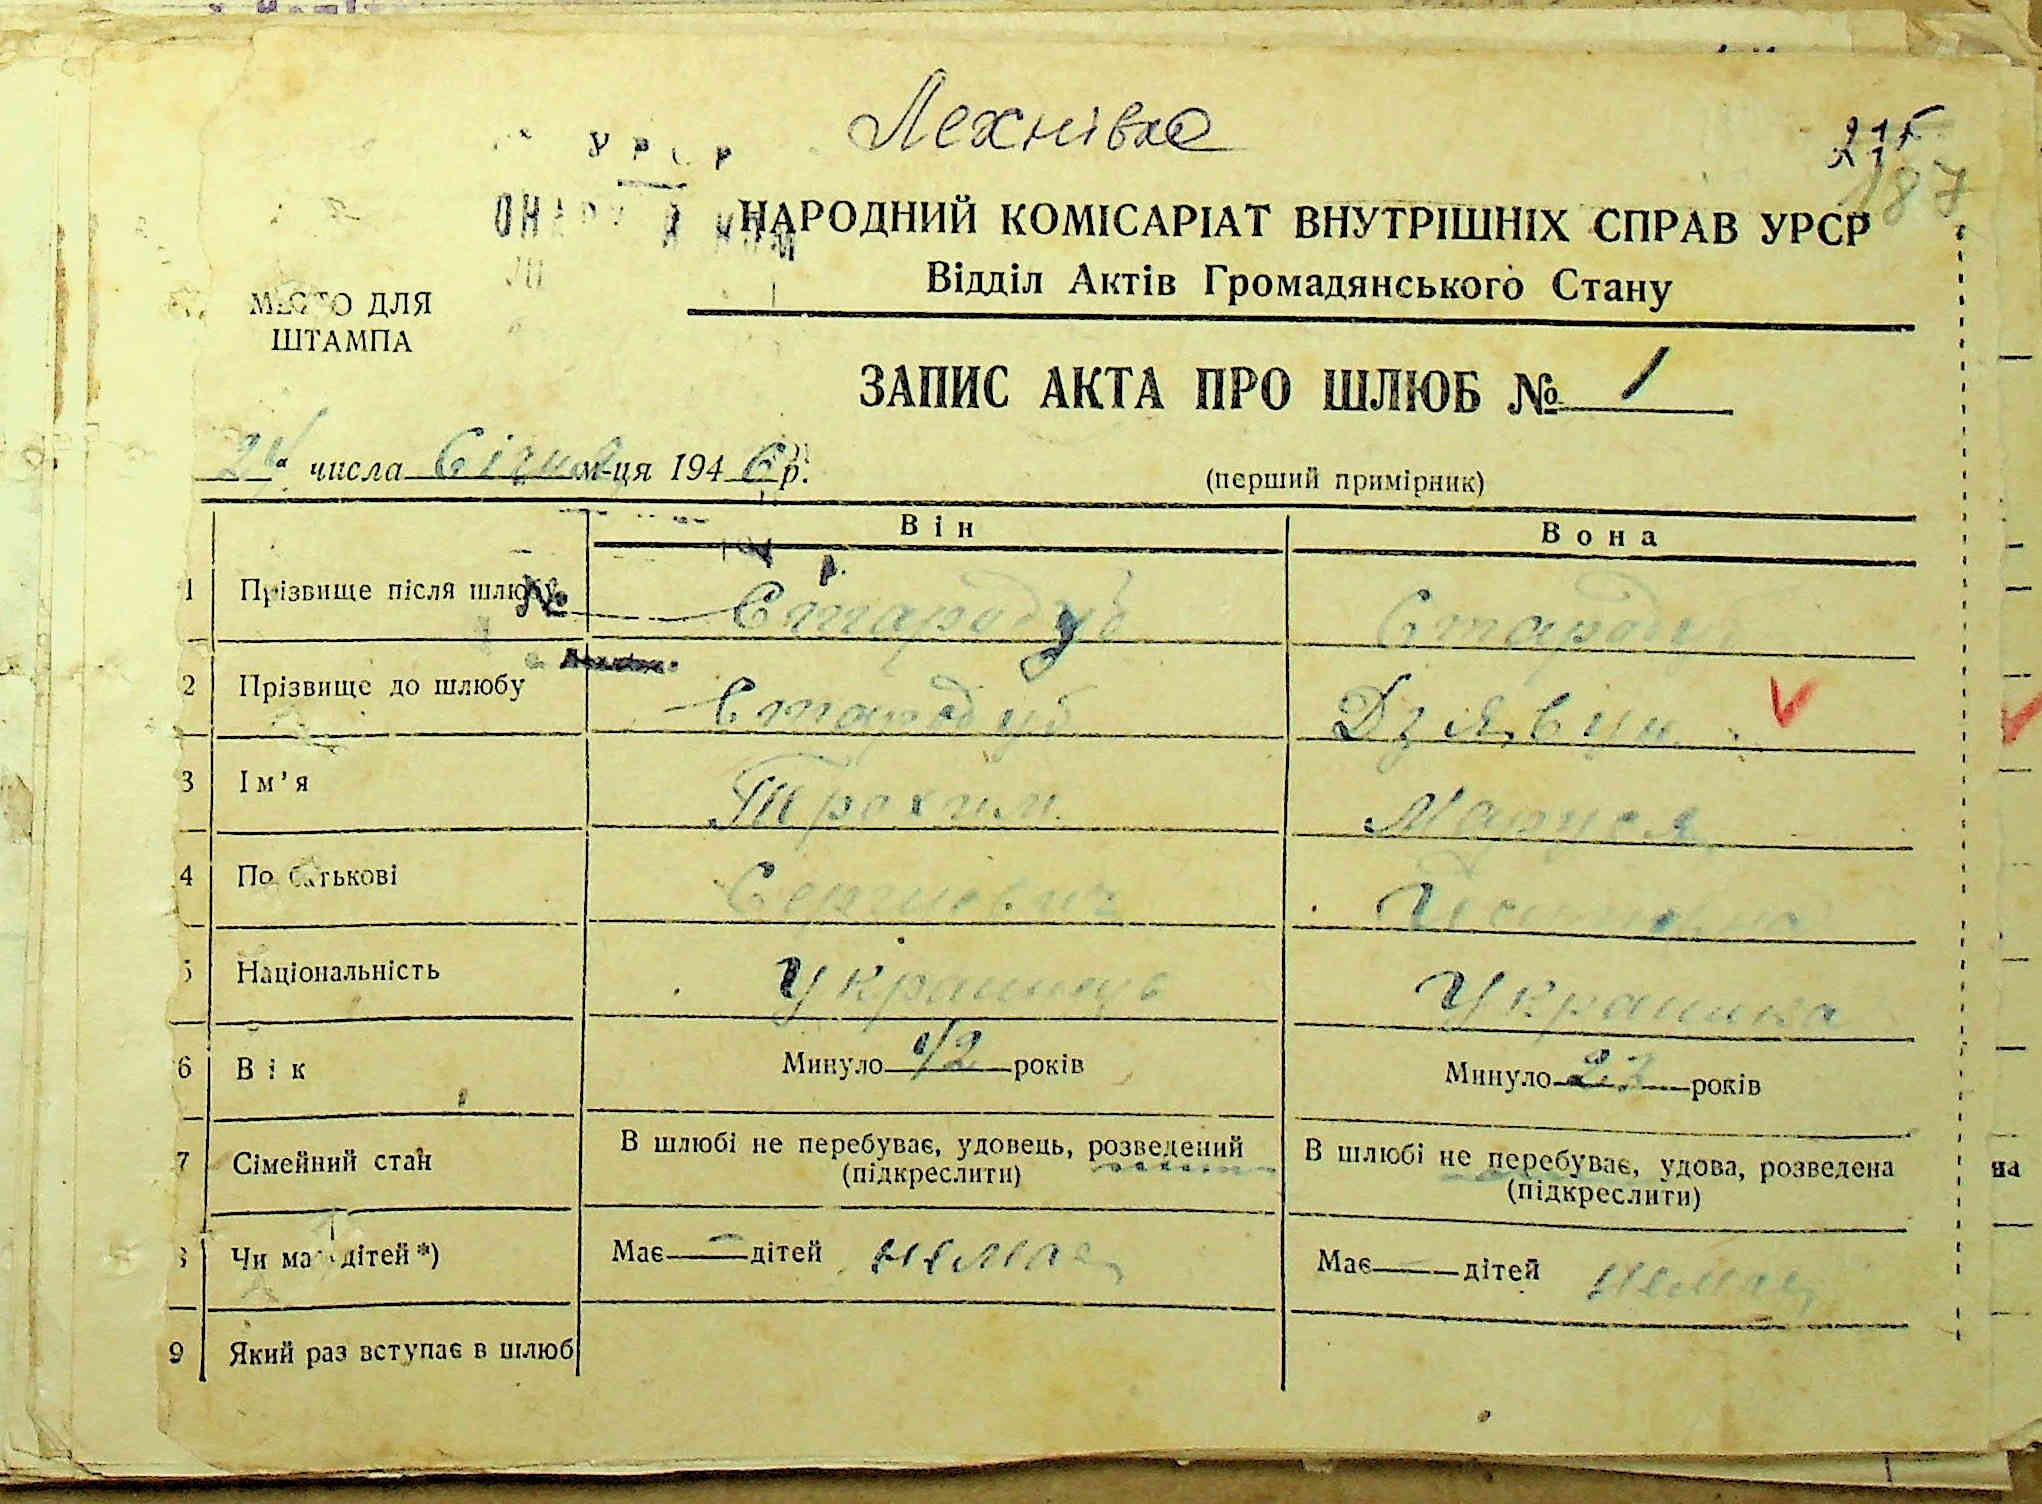 Лехнівка
УРСР
187
НАРОДНИЙ КОМІСАРІАТ ВНУТРІШНІХ СПРАВ УРСР
Відділ Актів Громадянського Стану
МІСТО ДЛЯ
ШТАМПА
ЗАПИС АКТА ПРО ШЛЮБ № 1
24 числа Січня м-ця 1946 р.
(перший примірник)
Він Вона
1 Прізвище після шлюбу Стародуб Стародуб
№
2 Прізвище до шлюбу Стародуб Дзявун
3 Ім'я Трохим Маруся
4 По батькові Сергиевич
5 Національність Украинець Украинка
6 Вік Минуло років Минуло 27 років
7 Сімейний стан В шлюбі не перебуває, удовець, розведений В шлюбі не перебуває, удова, розведена
(підкреслити) (підкреслити)
8 Чи має дітей *) Має — дітей немає Має — дітей немає
9 Який раз вступає в шлюб
на